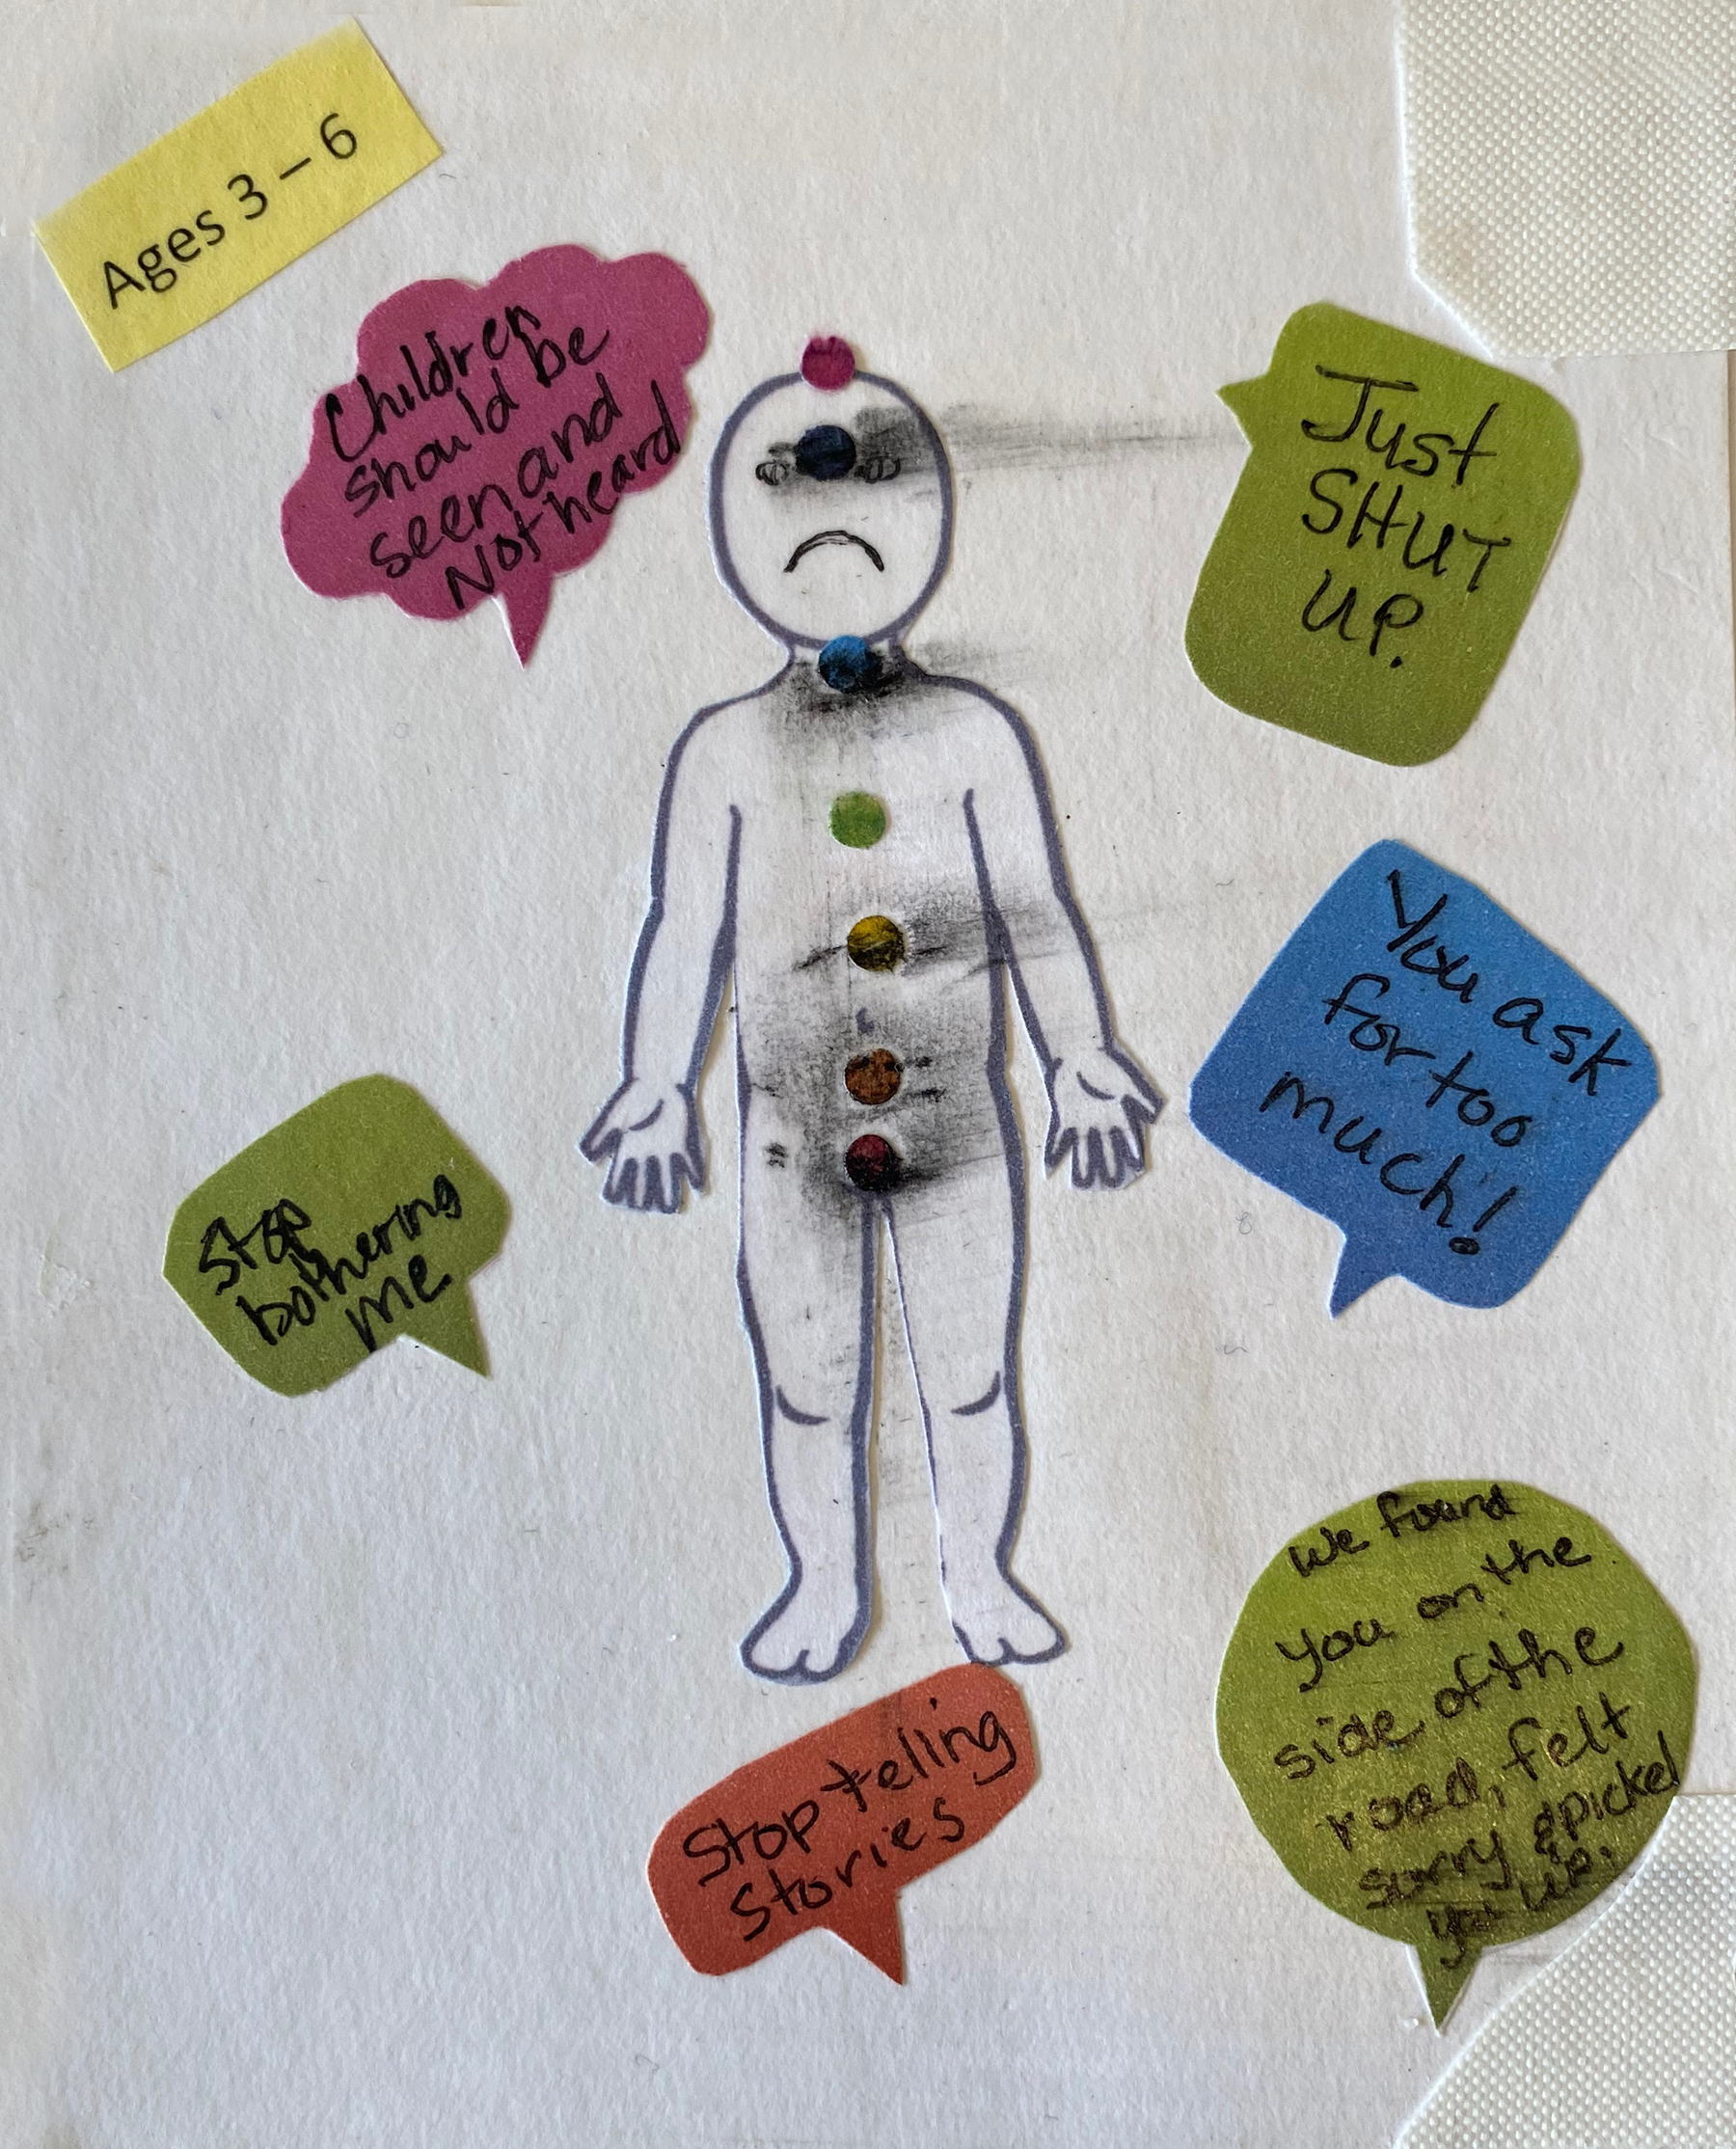 Ages 3 – 6
Children
should be
seen and
Not heard
Just
SHUT
UP.
You ask
for too
much!
Stop
bothering
me
We found
you on the
side of the
road, felt
sorry & picked
you up.
Stop telling
Stories